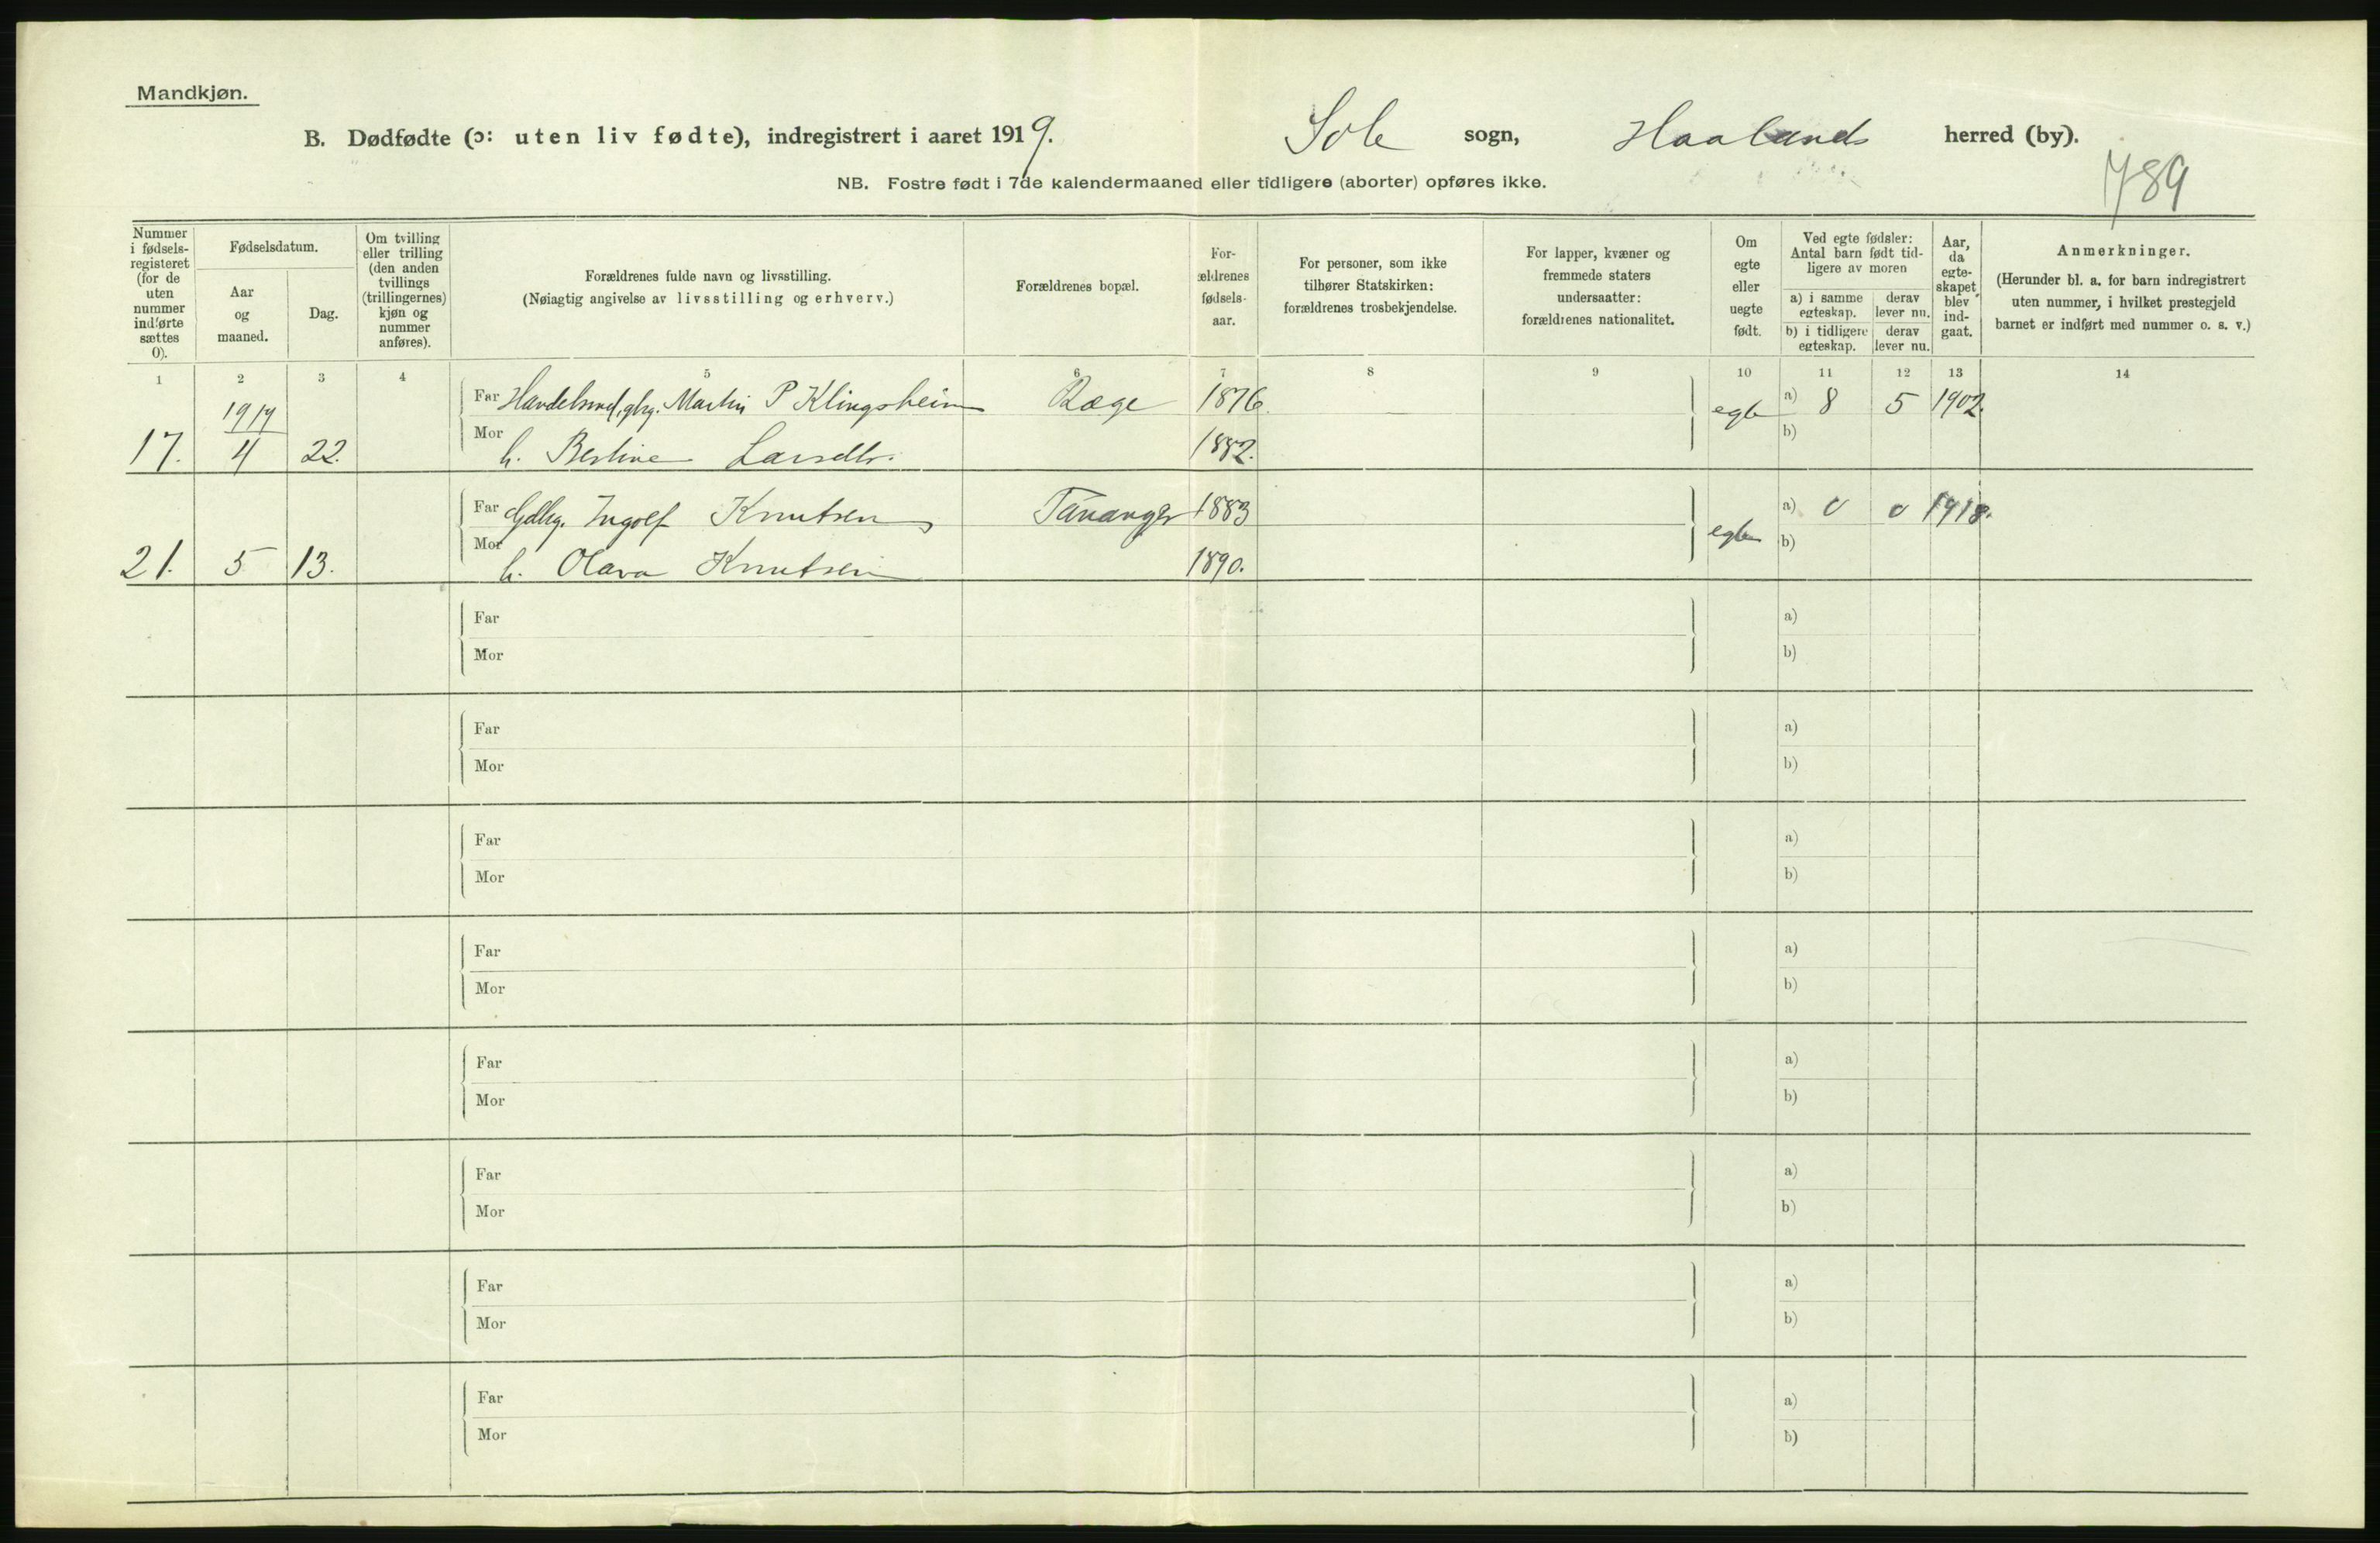 Mandkjøn.
B. Dødfødte (ɔ: uten liv fødte), indregistrert i aaret 1919. Sole sogn, Haalands herred (by).
NB. Fostre født i 7de kalendermaaned eller tidligere (aborter) opføres ikke.
789
Nummer i fødsels-registeret (for de uten nummer indførte sættes 0).
Fødselsdatum.
Aar og maaned.
Dag.
Om tvilling eller trilling (den anden tvillings (trillingernes) kjøn og nummer anføres).
Forældrenes fulde navn og livsstilling.
(Nøiagtig angivelse av livsstilling og erhverv.)
Forældrenes bopæl.
For-ældrenes fødsels-aar.
For personer, som ikke tilhører Statskirken: forældrenes trosbekjendelse.
For lapper, kvæner og fremmede staters undersaatter: forældrenes nationalitet.
Om egte eller uegte født.
Ved egte fødsler: Antal barn født tid-ligere av moren
a) i samme egteskap. derav lever nu.
b) i tidligere egteskap. derav lever nu.
Aar, da egte-skapet blev ind-gaat.
Anmerkninger.
(Herunder bl. a. for barn indregistrert uten nummer, i hvilket prestegjeld barnet er indført med nummer o. s. v.)
1 2 3 4 5 6 7 8 9 10 11 12 13 14
1919
Far Martin P Klingsheim Ræge 1876 egte a) 8 5 1902.
17. 4 22. Mor h. Bertine Larsdtr. 1882. b)
Far Gdbg. Ingolf Knutsen Tananger 1883 egte a) 0 0 1918.
21. 5 13. Mor h. Olava Knutsen 1890. b)
Far a)
Mor b)
Far a)
Mor b)
Far a)
Mor b)
Far a)
Mor b)
Far a)
Mor b)
Far a)
Mor b)
Far a)
Mor b)
Far a)
Mor b)